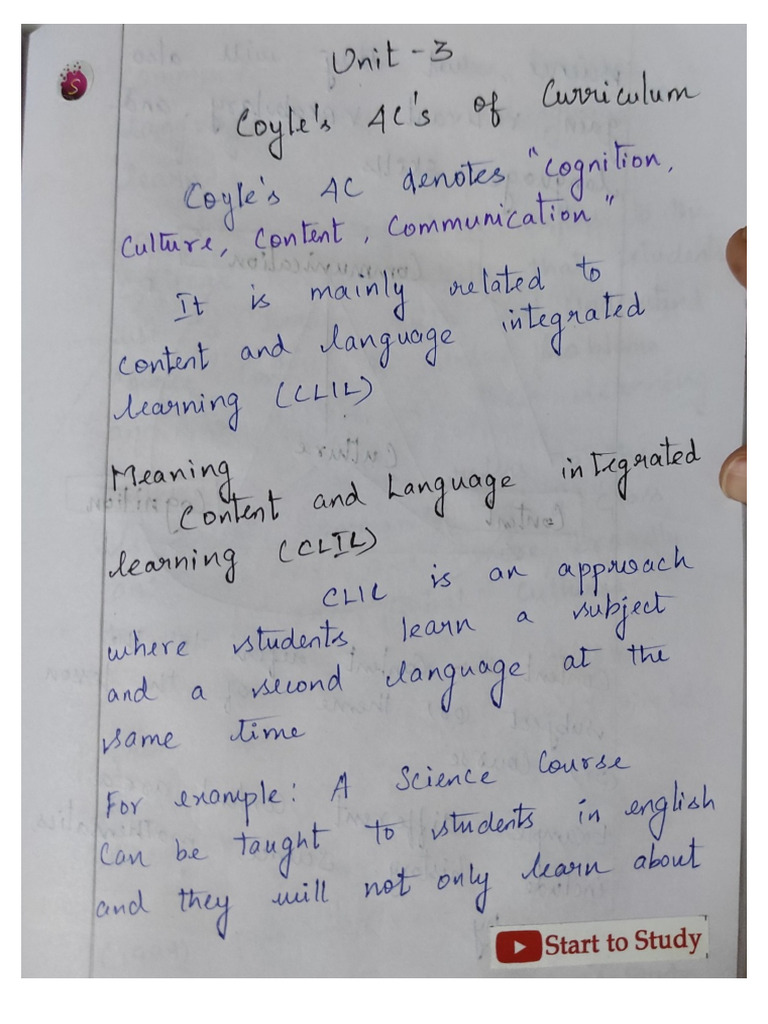 S
Unit - 3
Coyle's 4C's of Curriculum
Coyle's 4C denotes "cognition,
Culture, Content, Communication"
It is mainly related to
content and language integrated
learning (CLIL)
Meaning
Content and Language integrated
learning (CLIL)
CLIL is an approach
where students learn a subject
and a second language at the
same time
For example: A Science Course
can be taught to students in english
and they will not only learn about
Start to Study